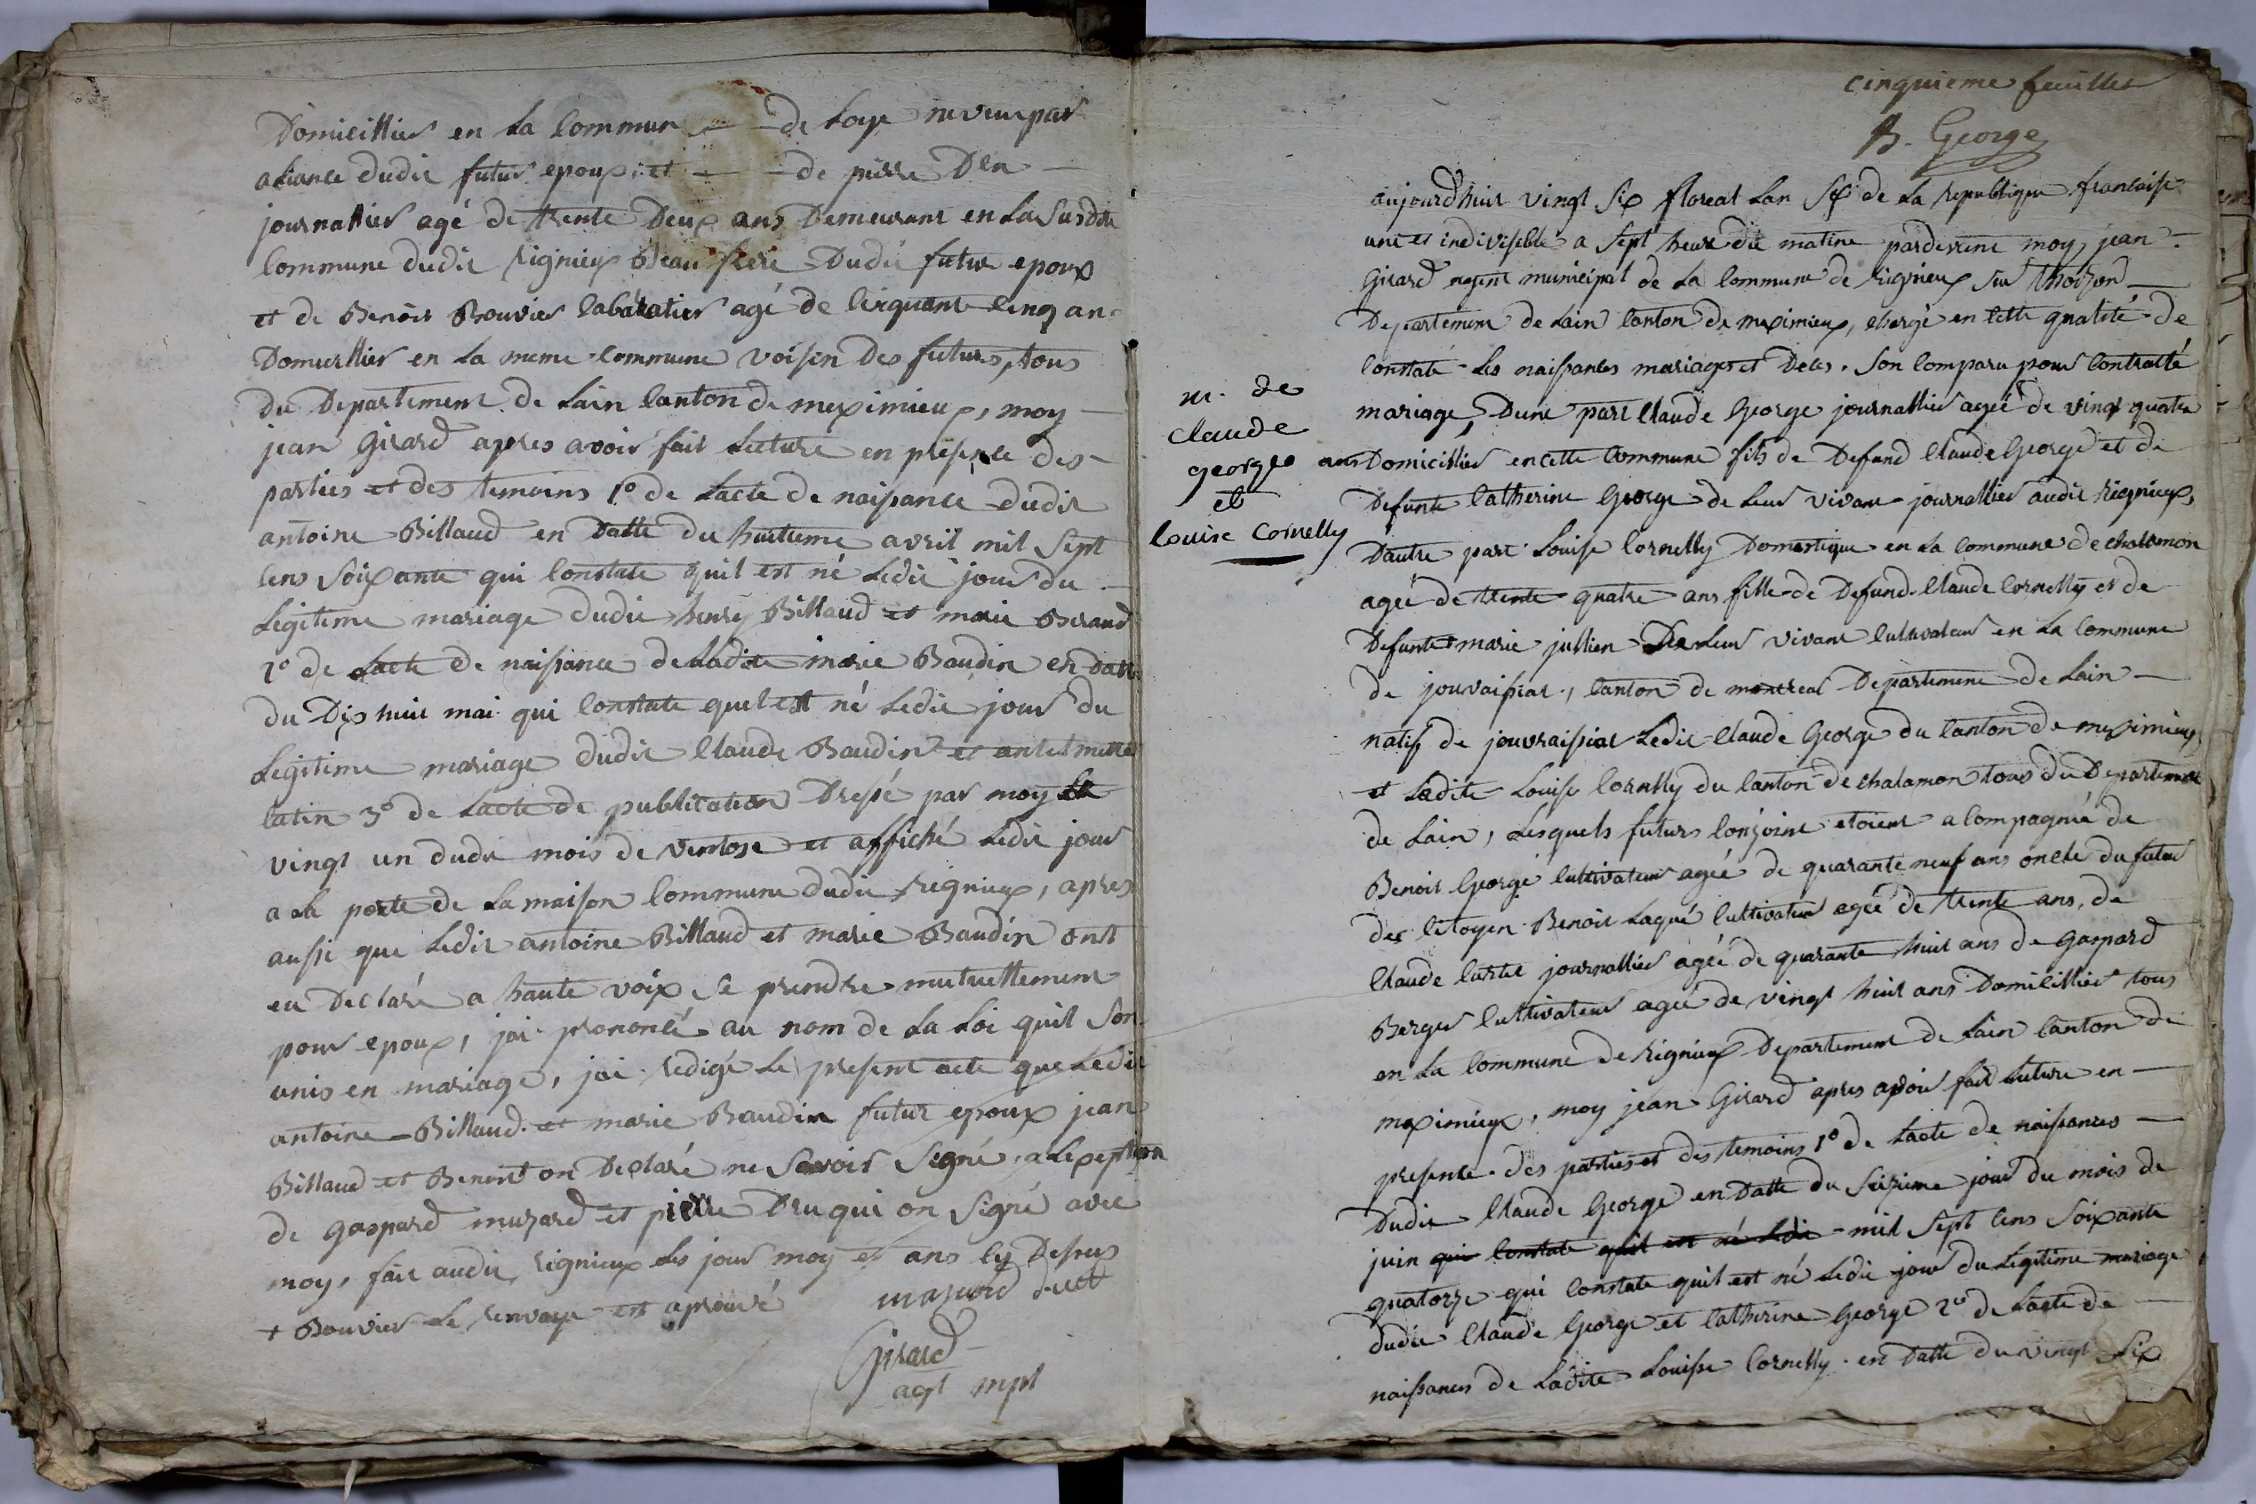 Domicillier en La Commune de Loye neveu par
aliance dudit futur epoux; et de pierre Dru
journallier agé de trente Deux ans Demeurant en La Susdite
Commune dudit Rignieux Beau frere Dudit futur epoux
et de Benoit Bouvier agé de Cinquante Cinq ans
Domicillier en La meme Commune voisin Des futurs, tous
Du Departement de Lain Canton de meximieux, moy
jean Girard apres avoir fait Lecture en présence des
parties et des temoins 1º de Lacte de naissance dudit
antoine Billaud en Datte du huitieme avril mil Sept
Cens Soixante qui Constate quil est né Ledit jour du
Légitime mariage dudit henry Billaud et marie Beraud
2º de Lacte de naissance de Ladite marie Baudin en Datte
du Dix huit mai qui Constate quel est né Ledit jour du
Legitime mariage dudit Claude Baudin et
Catin 3º de Lacte de publication Dressé par moy Le
vingt un dudit mois de ventose et affiché Ledit jour
a La porte de La maison Commune dudit Rignieux, apres
aussi que Ledit antoine Billaud et marie Baudin ont
eu Declaré a haute voix Se prendre mutuellement
pour epoux, jai prononcé au nom de La Loi quil Son
unis en mariage, jai redigé Le present acte que Ledit
antoine Billaud et marie Baudin futur epoux jean
Billaud et Benoit on Declaré ne Savoir Signé, a Lexception
de gaspard muzard et pierre Dru qui on Signé avec
moy, fait audit Rignieux Les jour moy et ans Cy Dessus
+ Bouvier Le renvoye est aprouvé
Girard
agt mpl
cinquieme feuillet
B. George
aujourdhuit vingt Six floreal Lan Six de La republique francaise
une et indivisible a Sept heure du matine pardevent moy, jean
Girard agent municipal de La Commune de Rignieux Sur thoizon
Departement de Lain Canton de meximieux, chargé en Cette qualité de
Constaté Les naissances mariages et Deces. Son Comparu pour Contracté
mariage, Dune part Claude George journallier ageé de vingt quatre
ans Domicillier en cette Commune fils de Defund Claude George et de
Defunte Catherine George de Leur vivant journallier audit Riegnieux,
Dautre part Louise Cornelly Domestique en La Commune de chalamon
ageé de trente quatre ans fille de Defund Claude Cornelly et de
Defunte marie jullien De Leur vivant Cultivateur en La Commune
de jouvaissiat, Canton de montreal Departement de Lain
natif de jouvraissiat Ledit Claude George du Canton de meximieux
et Ladite Louise Cornelly du Canton de chalamon tous du Departement
de Lain, Lesquels futurs Conjoint etoient acompagnié de
Benoit George Cultivateur ageé de quarante neuf ans oncle du futur
des Citoyen Benoit Laqué Cultivateur ageé de trente ans, de
Claude journallier ageé de quarante huit ans de gaspard
Berger Cultivateur ageé de vingt huit ans Domicillier tous
en La Commune de Rignieux Departement de Lain Canton de
meximieux, moy jean Girard apres avoir fait Lecture en
presente des parties et des temoins 1º de Lacte de naissances
Dudit Claude George en Datte du Seizieme jour du mois de
juin qui Constate quil est né Ledit mil Sept Cens Soixante
quatorze qui Constate quil est né Ledit jour du Legitime mariage
dudit Claude George et Catherine George 2º de Lacte de
naissances de Ladite Louise Cornelly en Datte du vingt Six
m. de
claude
george
et
Louise Cornelly